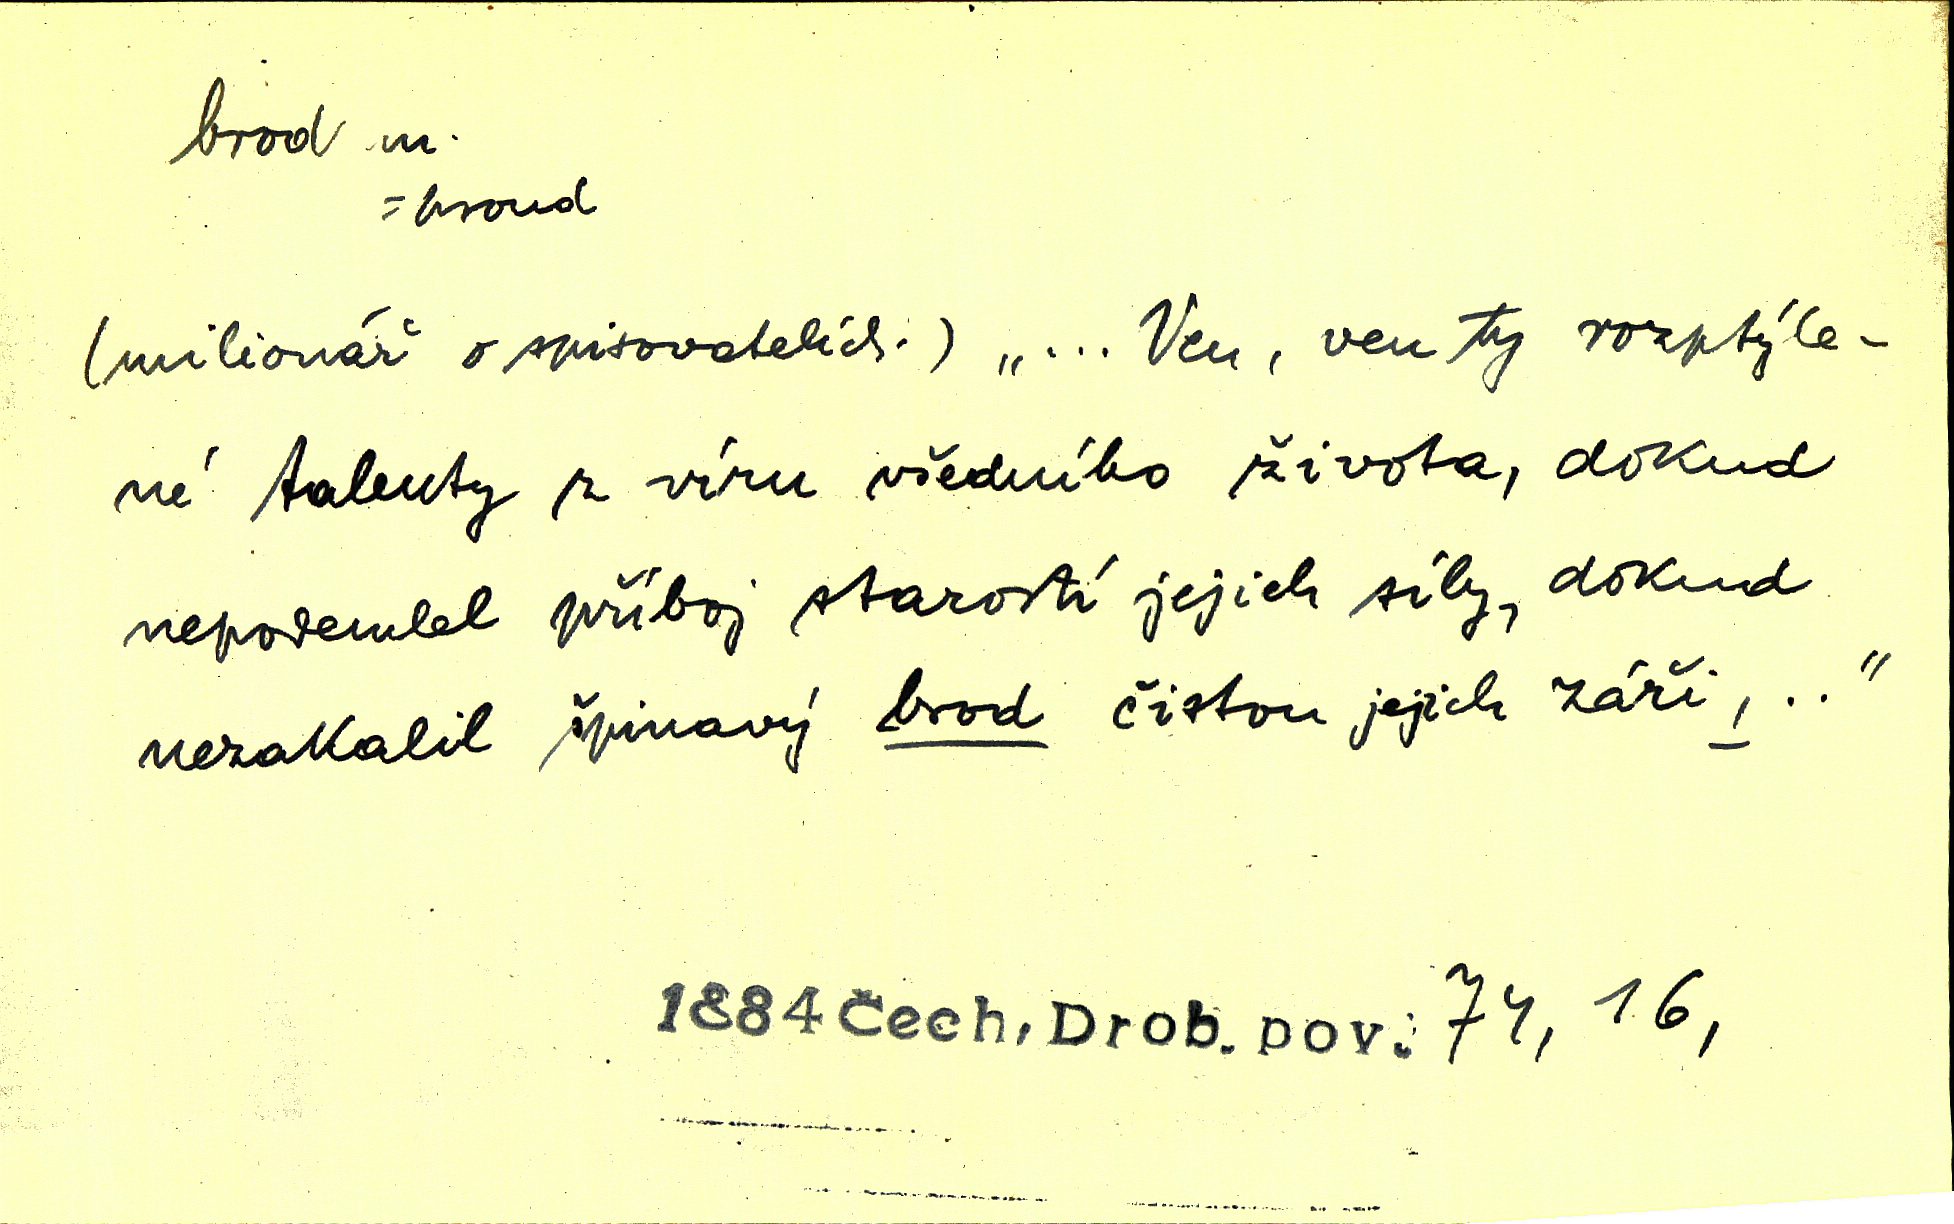 brod m.
= proud
(milionář o spisovatelích.) „... Ven, ven ty rozptýle-
né talenty z víru všedního života, dokud
nepodemlel příboj starostí jejich síly, dokud
nezakalil špinavý brod čistou jejich záři, .."
1884 Čech, Drob. pov.: 74, 16,